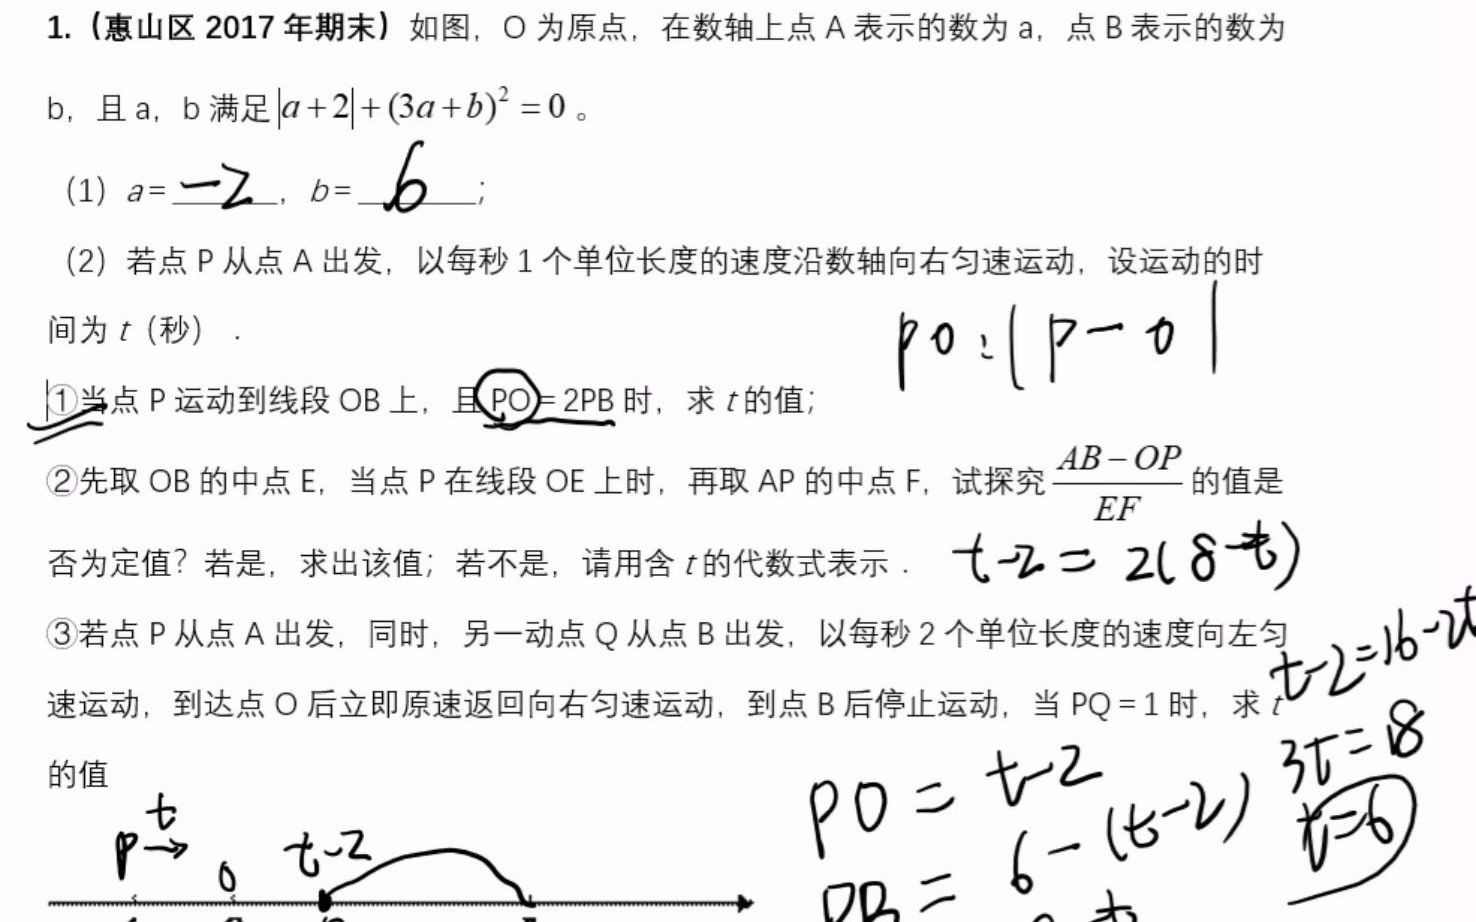 1.（惠山区 2017 年期末）如图，O 为原点，在数轴上点 A 表示的数为 a，点 B 表示的数为
b，且 a，b 满足|a+2|+(3a+b)²=0。
（1）a=-2，b=6；
（2）若点 P 从点 A 出发，以每秒 1 个单位长度的速度沿数轴向右匀速运动，设运动的时
间为 t（秒）．
PO:|P-0|
①当点 P 运动到线段 OB 上，且 PO=2PB 时，求 t 的值；
②先取 OB 的中点 E，当点 P 在线段 OE 上时，再取 AP 的中点 F，试探究 (AB-OP)/EF 的值是
否为定值？若是，求出该值；若不是，请用含 t 的代数式表示．
t-2=2(8-t)
③若点 P 从点 A 出发，同时，另一动点 Q 从点 B 出发，以每秒 2 个单位长度的速度向左匀
t-2=16-2t
速运动，到达点 O 后立即原速返回向右匀速运动，到点 B 后停止运动，当 PQ=1 时，求 t
3t=18
的值
t=6
PO=t-2
t
P→
0
t-2
PB=6-(t-2)